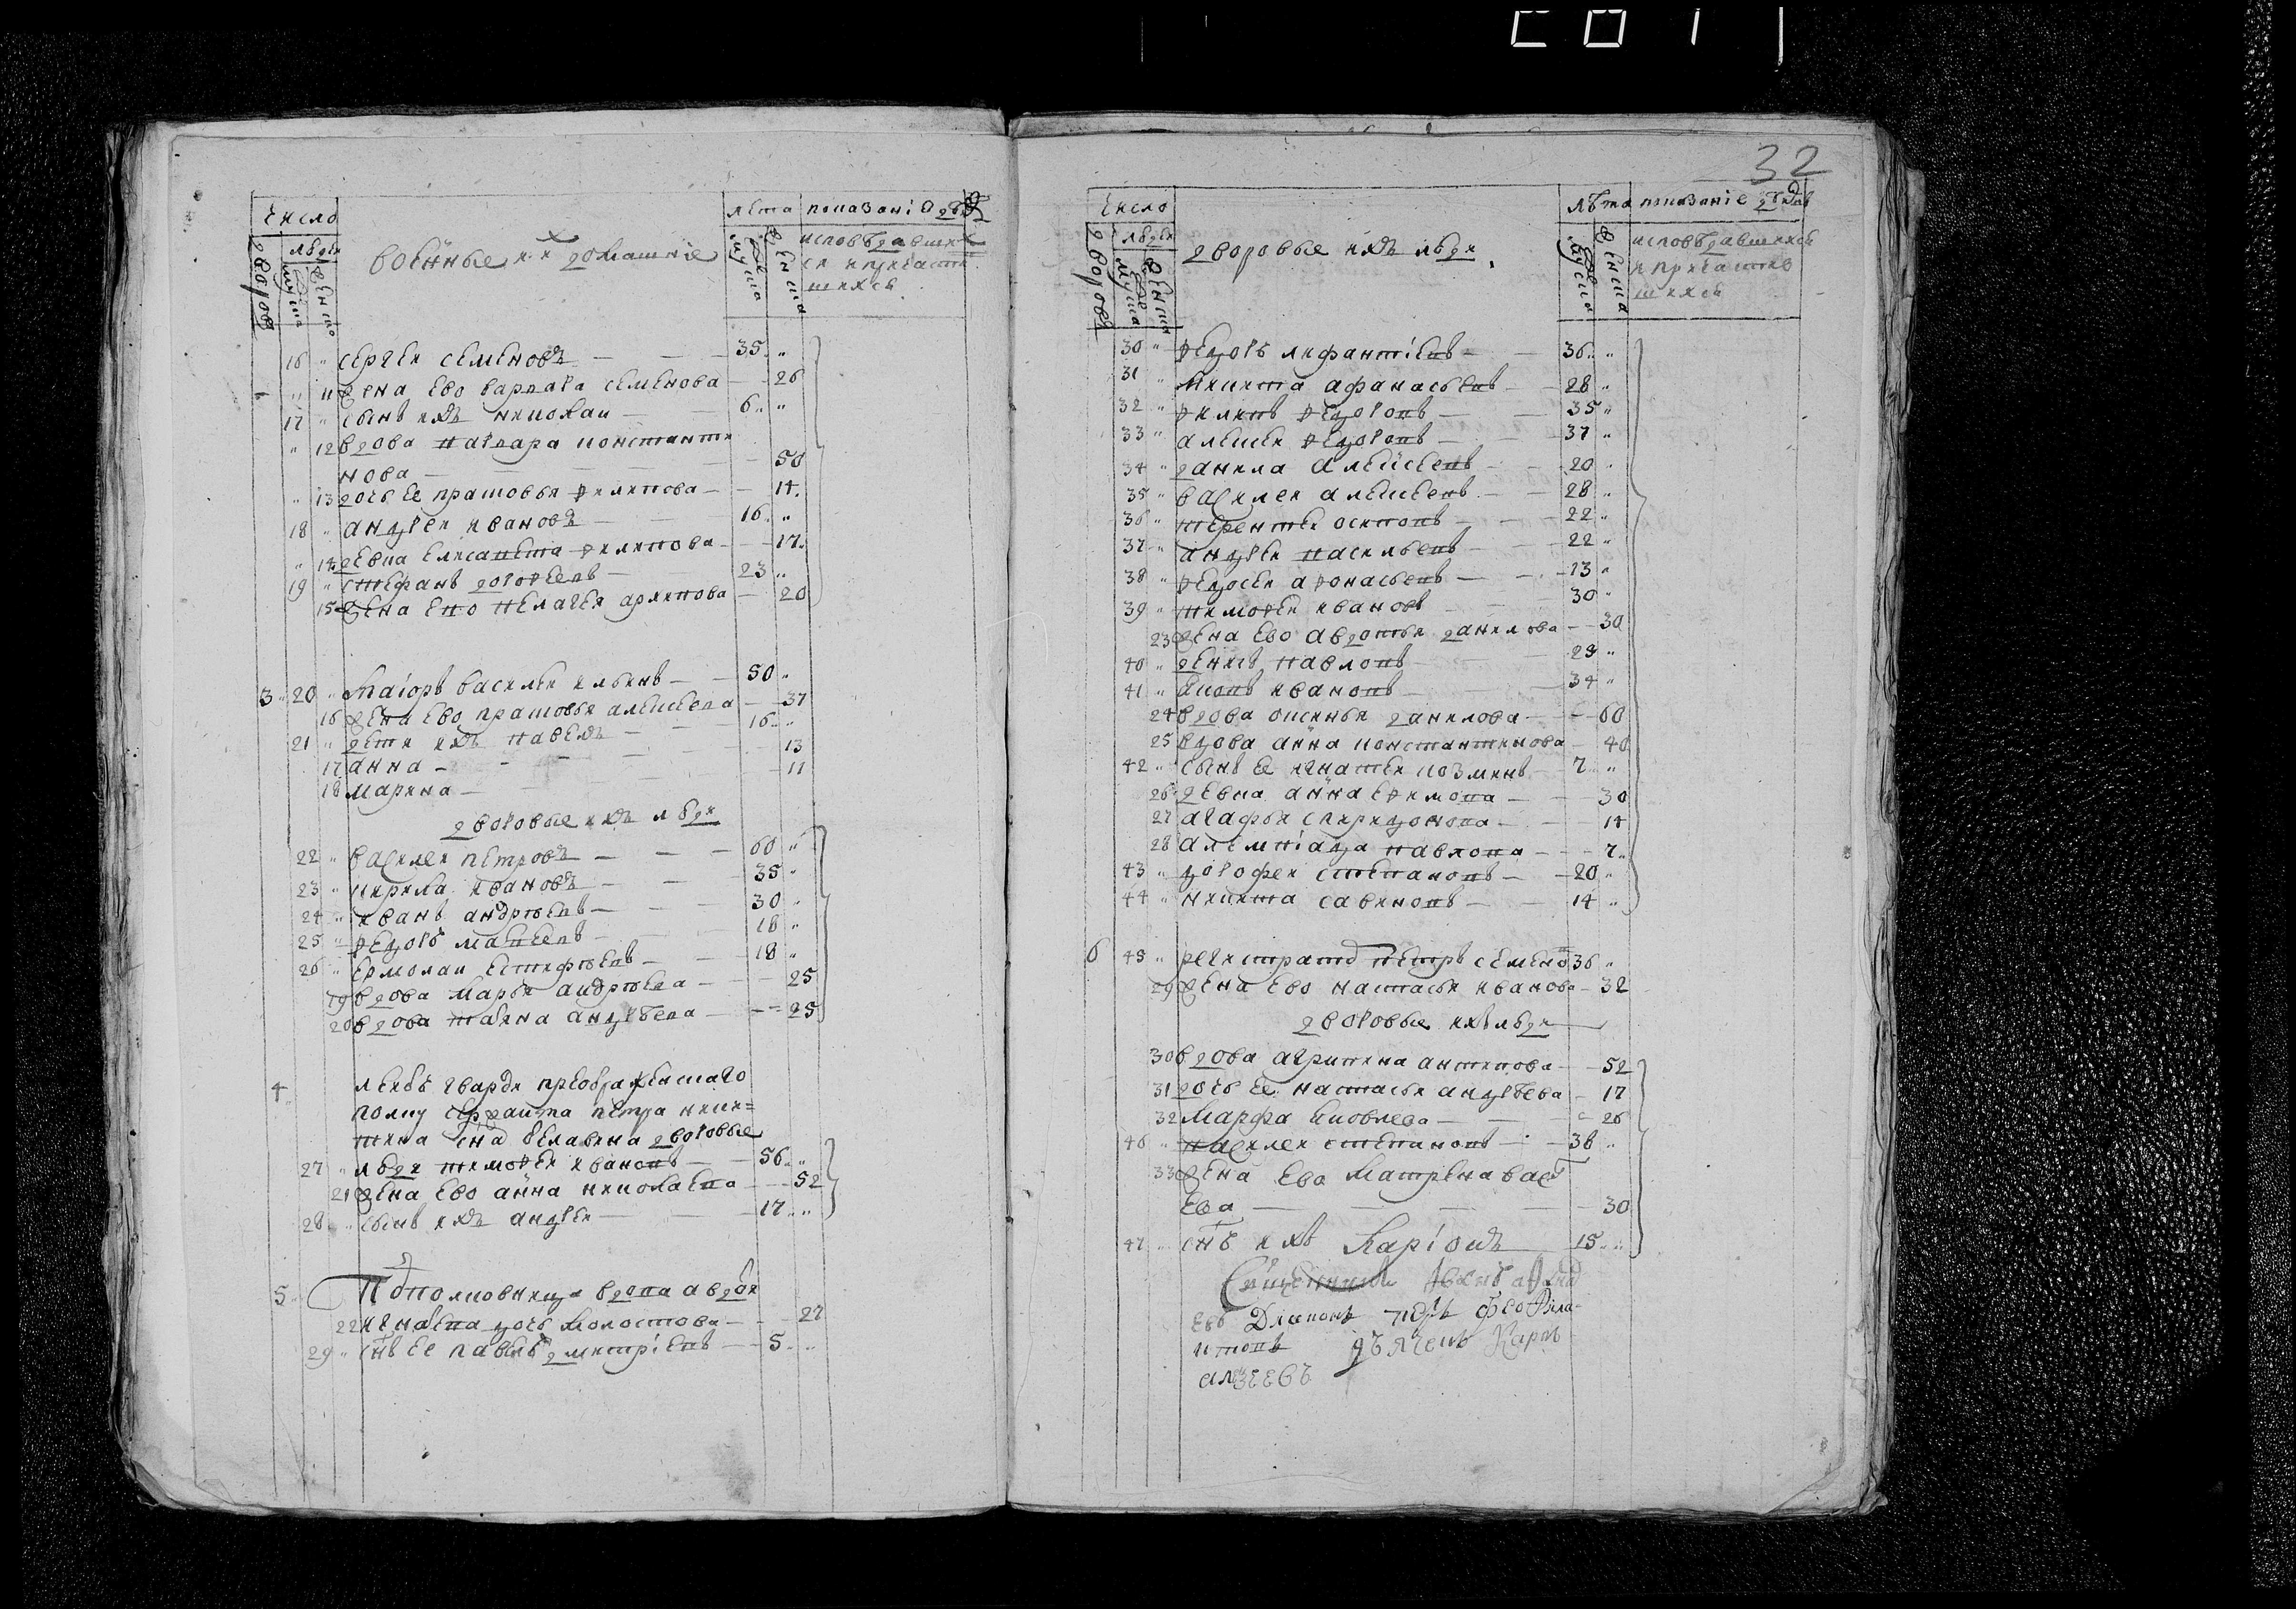 число
людей
дворовъ
мужеска
женска
военные и их домашніе
лѣта
показаніе
мужеска
женска
исповѣдавших
ся и причасти
шихся
16 " сергеи семеновъ — 35 "
" 11 жена ево варвара семенова — 26
17 " сынъ ихъ николаи — 6 "
" 12 вдова варвара константи
нова — 50
" 13 дочь ее прасковья филипова — 14
18 " андреи ивановъ — 16 "
" 14 девка елисавета филипова — 17
19 " стефанъ дорофеевъ — 23 "
15 жена ево пелагея архипова — 20
3 20 " маіоръ василеи ильинъ — 50 "
16 жена ево прасковья алексеева — 37
21 " дети ихъ павелъ — 16 "
17 анна — 13
18 марина — 11
дворовые ихъ люди
22 " василеи петровъ — 60 "
23 " кирила ивановъ — 35 "
24 " иванъ андрѣевъ — 30 "
25 " федоръ матвеевъ — 18 "
26 " ермолаи естифѣевъ — 18 "
19 вдова марья андрѣева — 25
20 вдова андрѣева — 25
4 леибъ гварди преображенскаго
полку сержанта петра ники=
тина сна белавина дворовые
27 " люди тимофеи ивановъ — 56 "
21 жена ево анна николаева — 52
28 " сынъ ихъ андреи — 17 "
5 Подполковница вдова авдо
22 игнатева дочь молостова — 27
29 " снъ ее павелъ дмитріевъ — 5 "
32
число
людей
дворовъ
мужеска
женска
дворовые ихъ люди
лѣта
показаніе
мужеска
женска
исповѣдавшихся
и причастив
шихся
30 " федоръ лифантіевъ — 36 "
31 " никита афанасьевъ — 28 "
32 " филипъ федоровъ — 35 "
33 " алексеи федоровъ — 37 "
34 " данила алексеевъ — 20 "
35 " василеи алексеевъ — 28 "
36 " терентеи осиповъ — 22 "
37 " андреи васильевъ — 22 "
38 " федосеи афонасьевъ — 13 "
39 " тимофеи ивановъ — 30 "
23 жена ево авдотья данилова — 30
40 " денисъ павловъ — 29 "
41 " яковъ ивановъ — 34 "
24 вдова оксинья данилова — 60
25 вдова анна константинова — 40
42 " сынъ ее игнатеи козминъ — 7 "
26 девка анна ефимова — 30
27 агафья спиридонова — 14
28 алемпіада павлова — 7
43 " дорофеи степановъ — 20 "
44 " никита савиновъ — 14 "
6 45 " регистраторъ петръ семено 36 "
29 жена ево настасья иванова — 32
дворовые ихъ люди
30 вдова агрипина антипова — 52
31 дочь ее настасья андрѣева — 17
32 марфа яковлева — 26
46 " василеи степановъ — 38 "
33 жена ево матрена васи
ева — 30
47 " снъ ихъ Карiонъ 15 "
Священникъ иванъ
евъ Діаконъ петръ феофила
ктовъ дьячекъ Карпъ
алѯеевъ